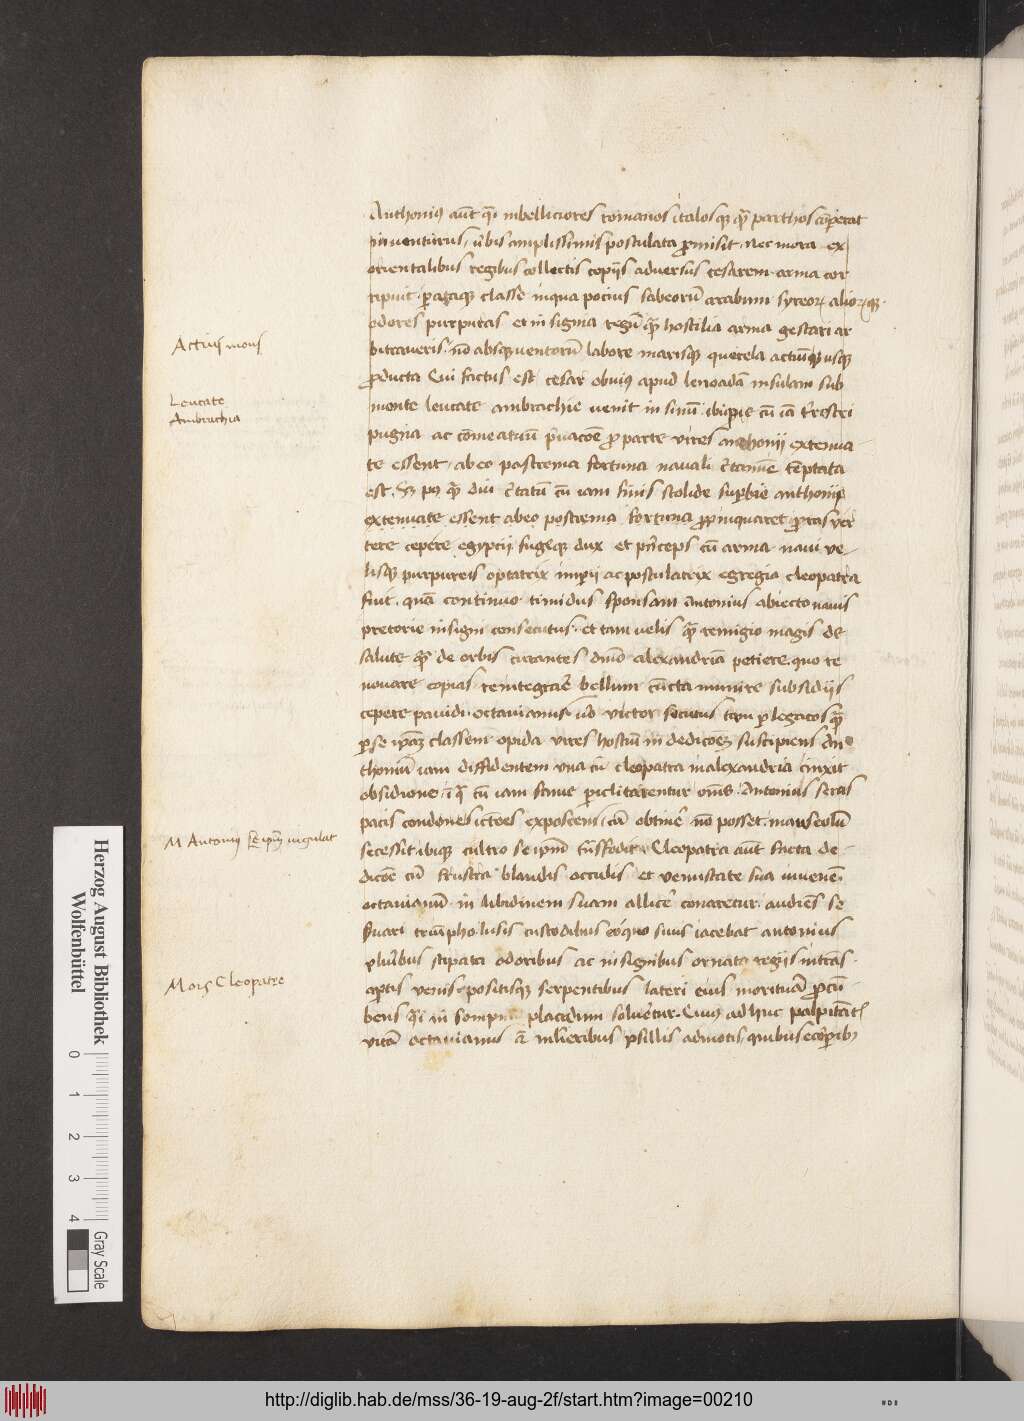 Anthoniꝯ aut̄ qͥ imbelliciores romanos italosqꝫ qͣ parthos cōp̄erat
inventurus, uͥbis amplissimis postulata ꝓmisit. nec mora ex
orientalibus regibus collectis copijs adversus cesarem arma cor
ripuit. paꝛaqꝫ classe inqua pocius sabeorū arabum syreoꝝ alioꝝqꝫ
odores purpuras et in signia regū qͣ hostilia arma gestari ar
bitraveris. nō absqꝫ ventorū labore marisqꝫ querela actiūqꝫ usqꝫ
ꝓducta Cui factus est cesar obuiꝯ apud lenoadā insulam sub
monte leucate ambrachie uenit in sinū. ibiqꝫ cū iā t̄restri
pugna ac cōmeatuū p̄uacōe ꝓ parte vires anthonij extenua
te essent, ab eo postrema fortuna navali c̄tamīe tēptata
est. Sꝫ pꝰ qͣ diu c̄tatū cū iam suis stolide sup̄bie anthonij
extenuate essent ab eo postrema fortuna ꝓpinquaret ꝓras ver
tere cepere egyptij fugeqꝫ dux et p̄nceps cū arma navi ve
lisqꝫ purpureis optatrix imp̄ij ac postulatrix egregia cleopatra
fuit. quā continuo timidus sponsam Antonius abiecto navis
pretorie insigni consecutus. et tam uelis qͣ remigio magis de
salute qͣ de orbis curantes dnīo alexandriā petiere. quo re
novare copias reintegrare bellum cūcta munire subsidijs
cepere pavidi. octavianus u̇o victor secutus tam ꝑ legatos qͣ
ꝑ se ip̄aꝫ classem opida vires hostiū in dedicōeꝫ suscipiens An
thoniū iam diffidentem una cū cleopatra in alexandria cinxit
obsidione, iͣ qͣ cū iam fame ꝑiclitarentur om̄s. Antonius seras
pacis condones icōes exposcens, cū obtinēr nō posset, mauseolū
secessit. ibiqꝫ cultro se ip̄m trāsfodit. Cleopatra aut̄ facta de
dicōe cū frustra blandis occulis et venustate sua iuvenē
octavianū in libidinem suam allicēr conaretur. audiēs se
s̄uari triūpho. lusis custodibus eo quo suus iacebat antonius
pluribus stipata odoribus ac in signibus ornata regijs intras.
aꝑtis venis. positisqꝫ serpentibus lateri eius morituā ꝓcū
bens qͣi in sompnū placidum solveretur. Cuiꝰ ad huc palpitātē
vitā octavianus cū mlieribus psillis admotis, quibus ecōpibꝰ
Actius mons
Leucate
Ambrachia
M Antoniꝰ se ip̄m iugulat
Mors Cleopatre
Herzog August Bibliothek
Wolfenbüttel
0 1 2 3 4
Gray Scale
http://diglib.hab.de/mss/36-19-aug-2f/start.htm?image=00210